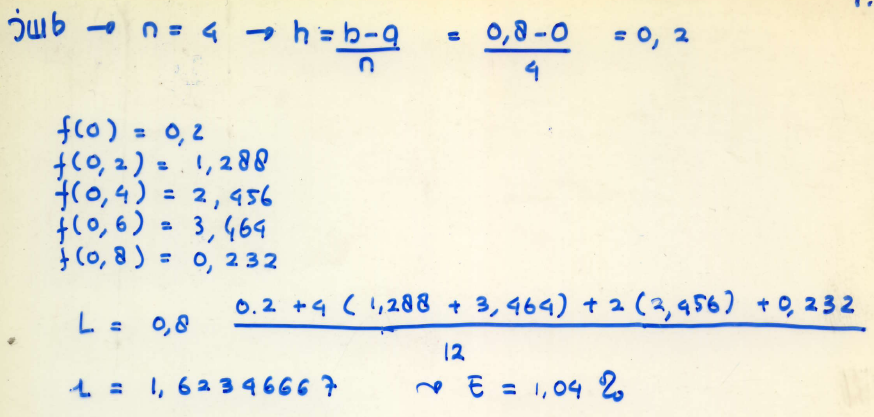 jwb → n = 4 → h = b-a/n = 0,8-0/4 = 0,2
f(0) = 0,2
f(0,2) = 1,288
f(0,4) = 2,456
f(0,6) = 3,464
f(0,8) = 0,232
L = 0,8 0.2 + 4 (1,288 + 3,464) + 2 (2,456) + 0,232/12
L = 1,62346667 ~ E = 1,04 %